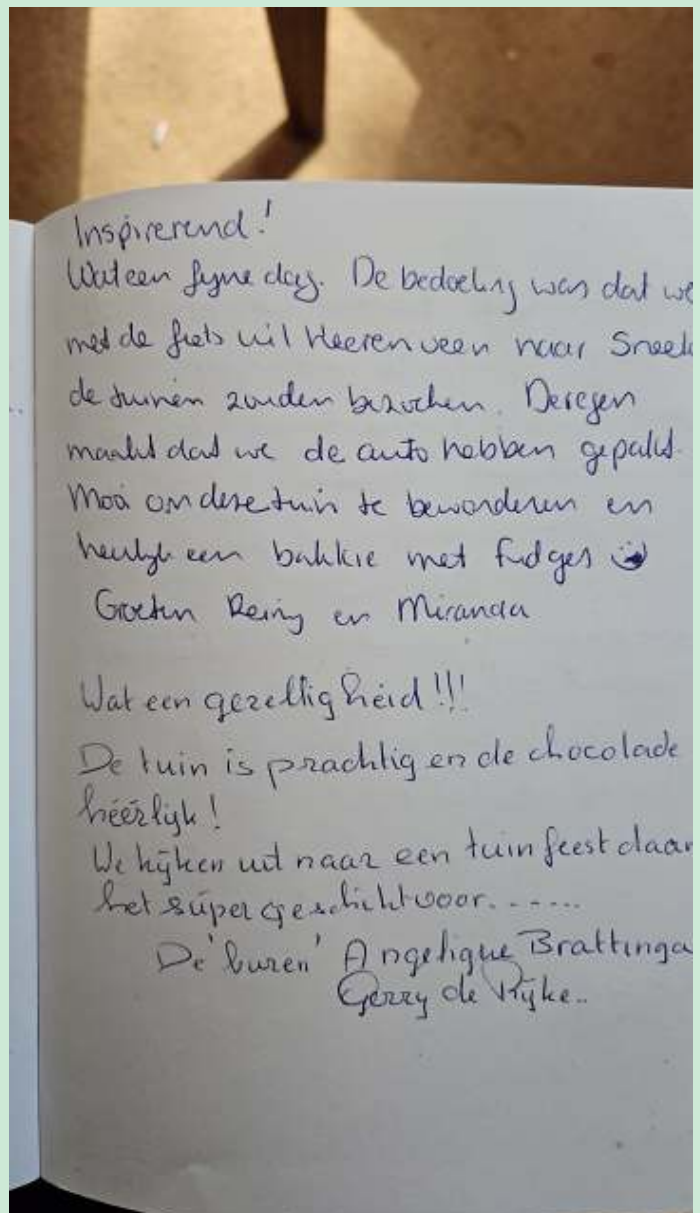 Inspirerend!
Wat een fijne dag. De bedoeling was dat we
met de fiets uit Heerenveen naar Sneek
de tuinen zouden bezoeken. De regen
maakt dat we de auto hebben gepakt.
Mooi om deze tuin te bewonderen en
heerlijk een bakkie met fudges
Groeten Reiny en Miranda
Wat een gezelligheid!!!
De tuin is prachtig en de chocolade
héérlijk!
We kijken uit naar een tuinfeest daar
het súper geschikt voor.......
De 'buren' Angelique Brattinga
Gerry de Rijke..